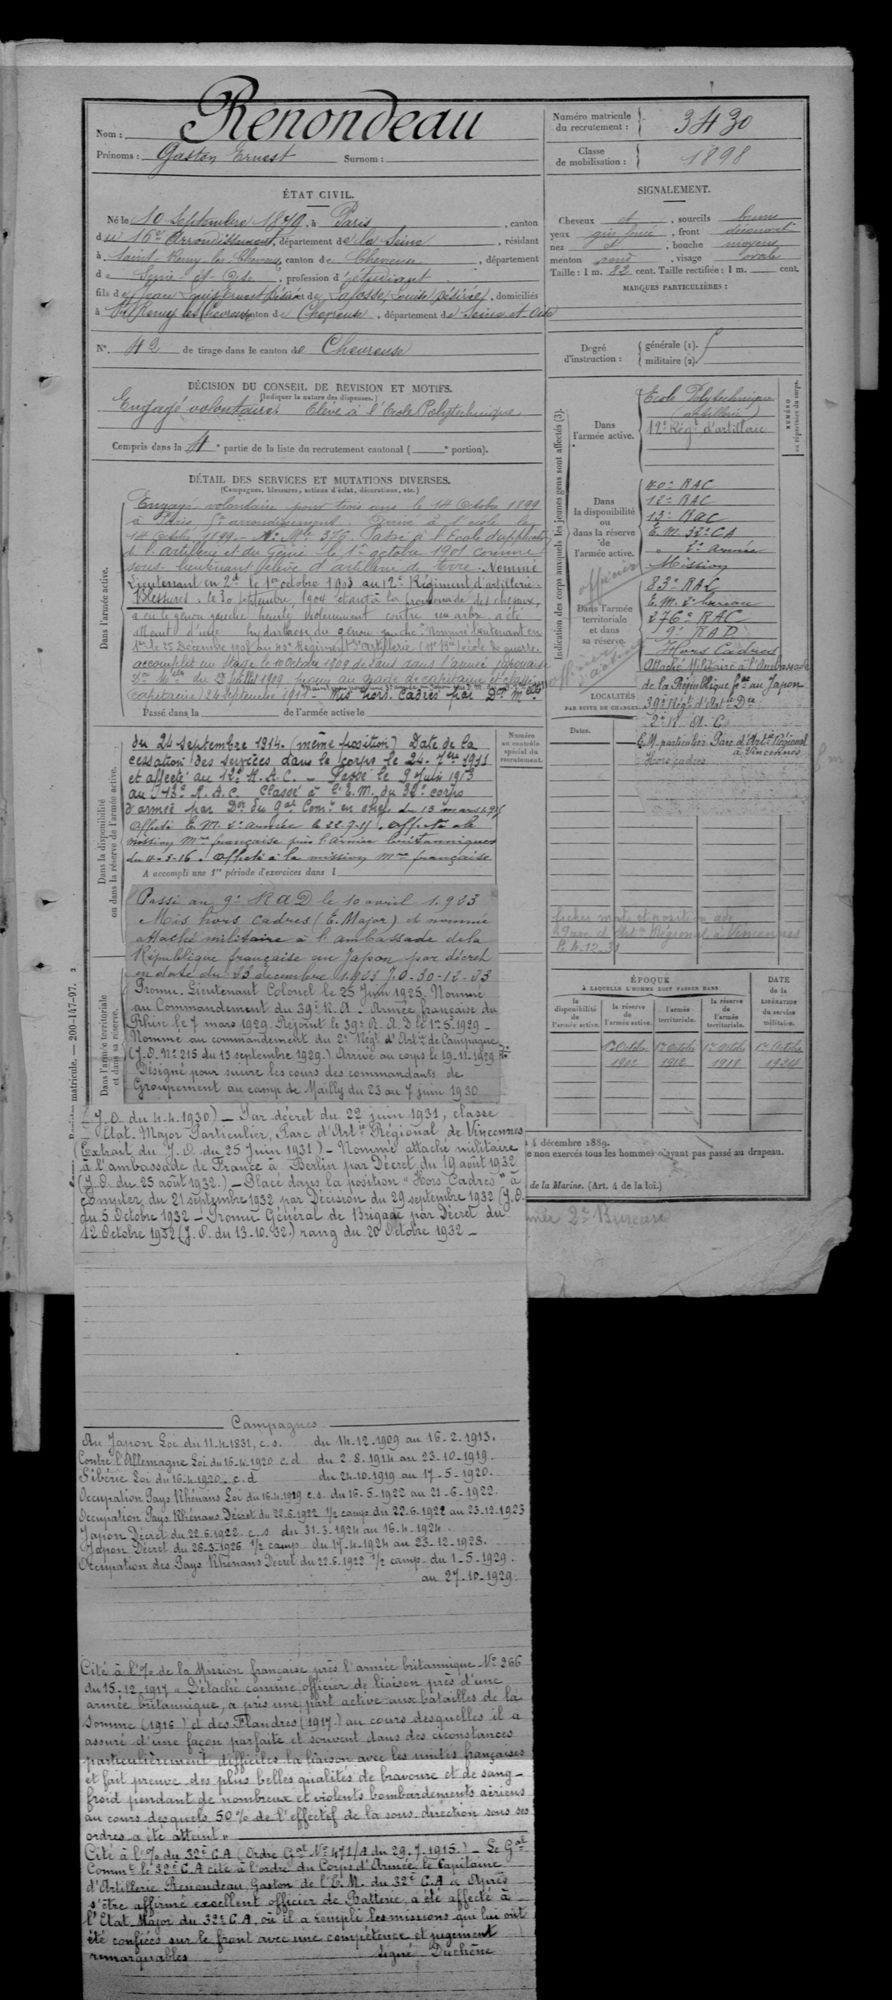 Nom : Renondeau
Prénoms : Gaston Ernest Surnom :
ÉTAT CIVIL.
Né le 10 Septembre 1879, à Paris, canton
du 16e Arrondissement, département de la Seine, résidant
à Saint Remy les Chevreuse, canton de Chevreuse, département
de Seine et Oise, profession d'étudiant
fils de Jean Louis Ernest Désiré et de Lafosse Louise Désirée, domiciliés
à St Remy les Chevreuse, canton de Chevreuse, département de Seine et Oise
N° 42 de tirage dans le canton de Chevreuse
DÉCISION DU CONSEIL DE REVISION ET MOTIFS.
(Indiquer la nature des dispenses.)
Engagé volontaire. Elève à l'Ecole Polytechnique
Compris dans la 4e partie de la liste du recrutement cantonal ( e portion).
DÉTAIL DES SERVICES ET MUTATIONS DIVERSES.
(Campagnes, blessures, actions d'éclat, décorations, etc.)
Dans l'armée active.
Engagé volontaire pour trois ans le 14 Octobre 1899
à Paris 5e arrondissement. Arrivé à l'école le
14 Octobre 1899. No Mle 376. Passé à l'Ecole d'application
de l'artillerie et du Génie le 1er octobre 1901 comme
sous-lieutenant élève d'artillerie de terre. Nommé
Lieutenant en 2d le 1er octobre 1903 au 12e Régiment d'artillerie.
Blessures. le 30 septembre 1904 étant à la promenade des chevaux,
a eu le genou gauche heurté violemment contre un arbre, a été
atteint d'une hydarthrose du genou gauche. Nommé lieutenant en
1er le 25 Décembre 1908 au Régiment d'Artillerie école de guerre
accomplit un stage le 10 Octobre 1909 de 2 ans dans l'armée japonaise
Don Mlle du 23 Juillet 1909 promu au grade de capitaine et classé
capitaine) 24 Septembre 1911 Mis hors cadres par Don Mlle
Passé dans la de l'armée active le
Dans la disponibilité ou dans la réserve de l'armée active.
du 24 septembre 1914. (même position) Date de la
cessation des services dans le corps le 24. 7bre 1911
et affecté au 12e R.A.C. - Passé le 9 Juin 1913
au 13e R.A.C. Classé à l'E.M. du 32e corps
d'armée par Don du Gal Comt en chef du 13 mars 1915
Affecté E.M. 2e armée le 22-9-15. affecté à la
mission mre française près l'armée britannique
du 4-5-16. affecté à la mission mre française
A accompli une 1re période d'exercices dans l
Dans l'armée territoriale et dans sa réserve.
Passé au 9e RAD le 10 avril 1923
Mis hors cadres (E. Major) et nommé
attaché militaire à l'ambassade de la
République française au Japon par décret
en date du 23 décembre 1923 J.O. 30-12-23
Promu Lieutenant Colonel le 25 Juin 1925. Nommé
au Commandement du 39e R.A. Armée française du
Rhin le 7 mars 1929. Rejoint le 39e R.A.D le 1-5-1929 -
Nommé au commandement du 2e Régt d'Artie de Campagne
(J.O. No 215 du 13 septembre 1929.) Arrivé au corps le 19-11-1929
Désigné pour suivre les cours des commandants de
Groupement au camp de Mailly du 23 au 7 juin 1930
(J.O. du 4.4.1930) - Par décret du 22 juin 1931, classé
Etat-Major Particulier, Parc d'Artie Régional de Vincennes
(Extrait du J.O. du 25 Juin 1931) - Nommé attaché militaire
à l'ambassade de France à Berlin par Décret du 19 août 1932
(J.O. du 25 août 1932.) - Placé dans la position "Hors Cadres" à
compter du 21 septembre 1932 par Décision du 29 septembre 1932 (J.O.
du 5 Octobre 1932 - Promu Général de Brigade par Décret du
12 Octobre 1932 (J.O. du 13.10.32.) rang du 20 Octobre 1932 -
Campagnes
Au Japon Loi du 11.4.1831, c.s. du 14-12-1909 au 16-2-1913.
Contre l'Allemagne Loi du 16.4.1920 c.d du 2.8.1914 au 23-10-1919.
Sibérie Loi du 16.4.1920 - c.d du 24-10-1919 au 17-5-1920.
Occupation Pays Rhénans Loi du 16.4.1929 c.s. du 16-5-1922 au 21-6-1922.
Occupation Pays Rhénans Décret du 22.6.1922 1/2 camp du 22.6.1922 au 23.12.1923
Japon Décret du 22.6.1922 c.s du 31.3.1924 au 16.4.1924.
Japon Décret du 26-3-1926 1/2 camp du 17-4-1924 au 23-12-1928.
Occupation des Pays Rhénans Décret du 22.6.1922 1/2 camp du 1-5-1929.
au 27-10-1929.
Cité à l'% de la Mission française près l'armée britannique No 366
du 15-12-1917 « Détaché comme officier de liaison près d'une
armée britannique, a pris une part active aux batailles de la
Somme (1916) et des Flandres (1917) au cours desquelles il a
assuré d'une façon parfaite et souvent dans des circonstances
particulièrement difficiles la liaison avec les unités françaises
et fait preuve des plus belles qualités de bravoure et de sang-
froid pendant de nombreux et violents bombardements aériens
au cours desquels 50% de l'effectif de la sous-direction sous ses
ordres a été atteint »
Cité à l'% du 32e C.A (Ordre Gal No 471/A du 29.7.1915.) - Le Gal
Commt le 32e C.A cite à l'ordre du Corps d'Armée le Capitaine
d'Artillerie Renondeau, Gaston de l'E.M. du 32e C.A « Après
s'être affirmé excellent officier de Batterie, a été affecté à
l'Etat Major du 32e C.A, où il a rempli les missions qui lui ont
été confiées sur le front avec une compétence et jugement
remarquables signé Duchêne
Numéro matricule du recrutement : 3430
Classe de mobilisation : 1898
SIGNALEMENT.
Cheveux et, sourcils bruns
yeux gris foncé, front découvert
nez et, bouche moyenne
menton rond, visage ovale
Taille : 1 m. 82 cent. Taille rectifiée : 1 m. cent.
MARQUES PARTICULIÈRES :
Degré d'instruction : générale (1). militaire (2). 5
Indication des corps auxquels les jeunes gens sont affectés (3).
NUMÉRO au répertoire du corps.
Dans l'armée active.
Ecole Polytechnique
(artillerie)
12e Régt d'artillerie
Dans la disponibilité ou dans la réserve de l'armée active.
40e RAC
12e RAC
13e RAC
E.M. 32e CA
" 2e armée
Mission
officier
Dans l'armée territoriale et dans sa réserve.
83e RAC
E.M. 2e bureau
276e RAC
9e RAD
Hors Cadres
officier d'active
Attaché Militaire à l'Ambassade
de la République fse au Japon
39e Régt d'Artie Dre
2e R.A.C.
E.M. particulier Parc d'Artie Régional
à Vincennes
Hors cadres
LOCALITÉS
PAR SUITE DE CHANGEM
Dates.
Numéro au contrôle spécial du recrutement.
fiches mat et position
Parc d'Artie Régional à Vincennes
le 4.12.31
ÉPOQUE
À LAQUELLE L'HOMME DOIT PASSER DANS
la disponibilité de l'armée active.
la réserve de l'armée active.
l'armée territoriale.
la réserve de l'armée territoriale.
DATE de la LIBÉRATION du service militaire.
1er Octobre 1902
1er Octobre 1912
1er Octobre 1918
1er Octobre 1924
4 décembre 1889.
e non exercés tous les hommes n'ayant pas passé au drapeau.
de la Marine. (Art. 4 de la loi.)
2e Bureau
matricule. — 200-147-97.